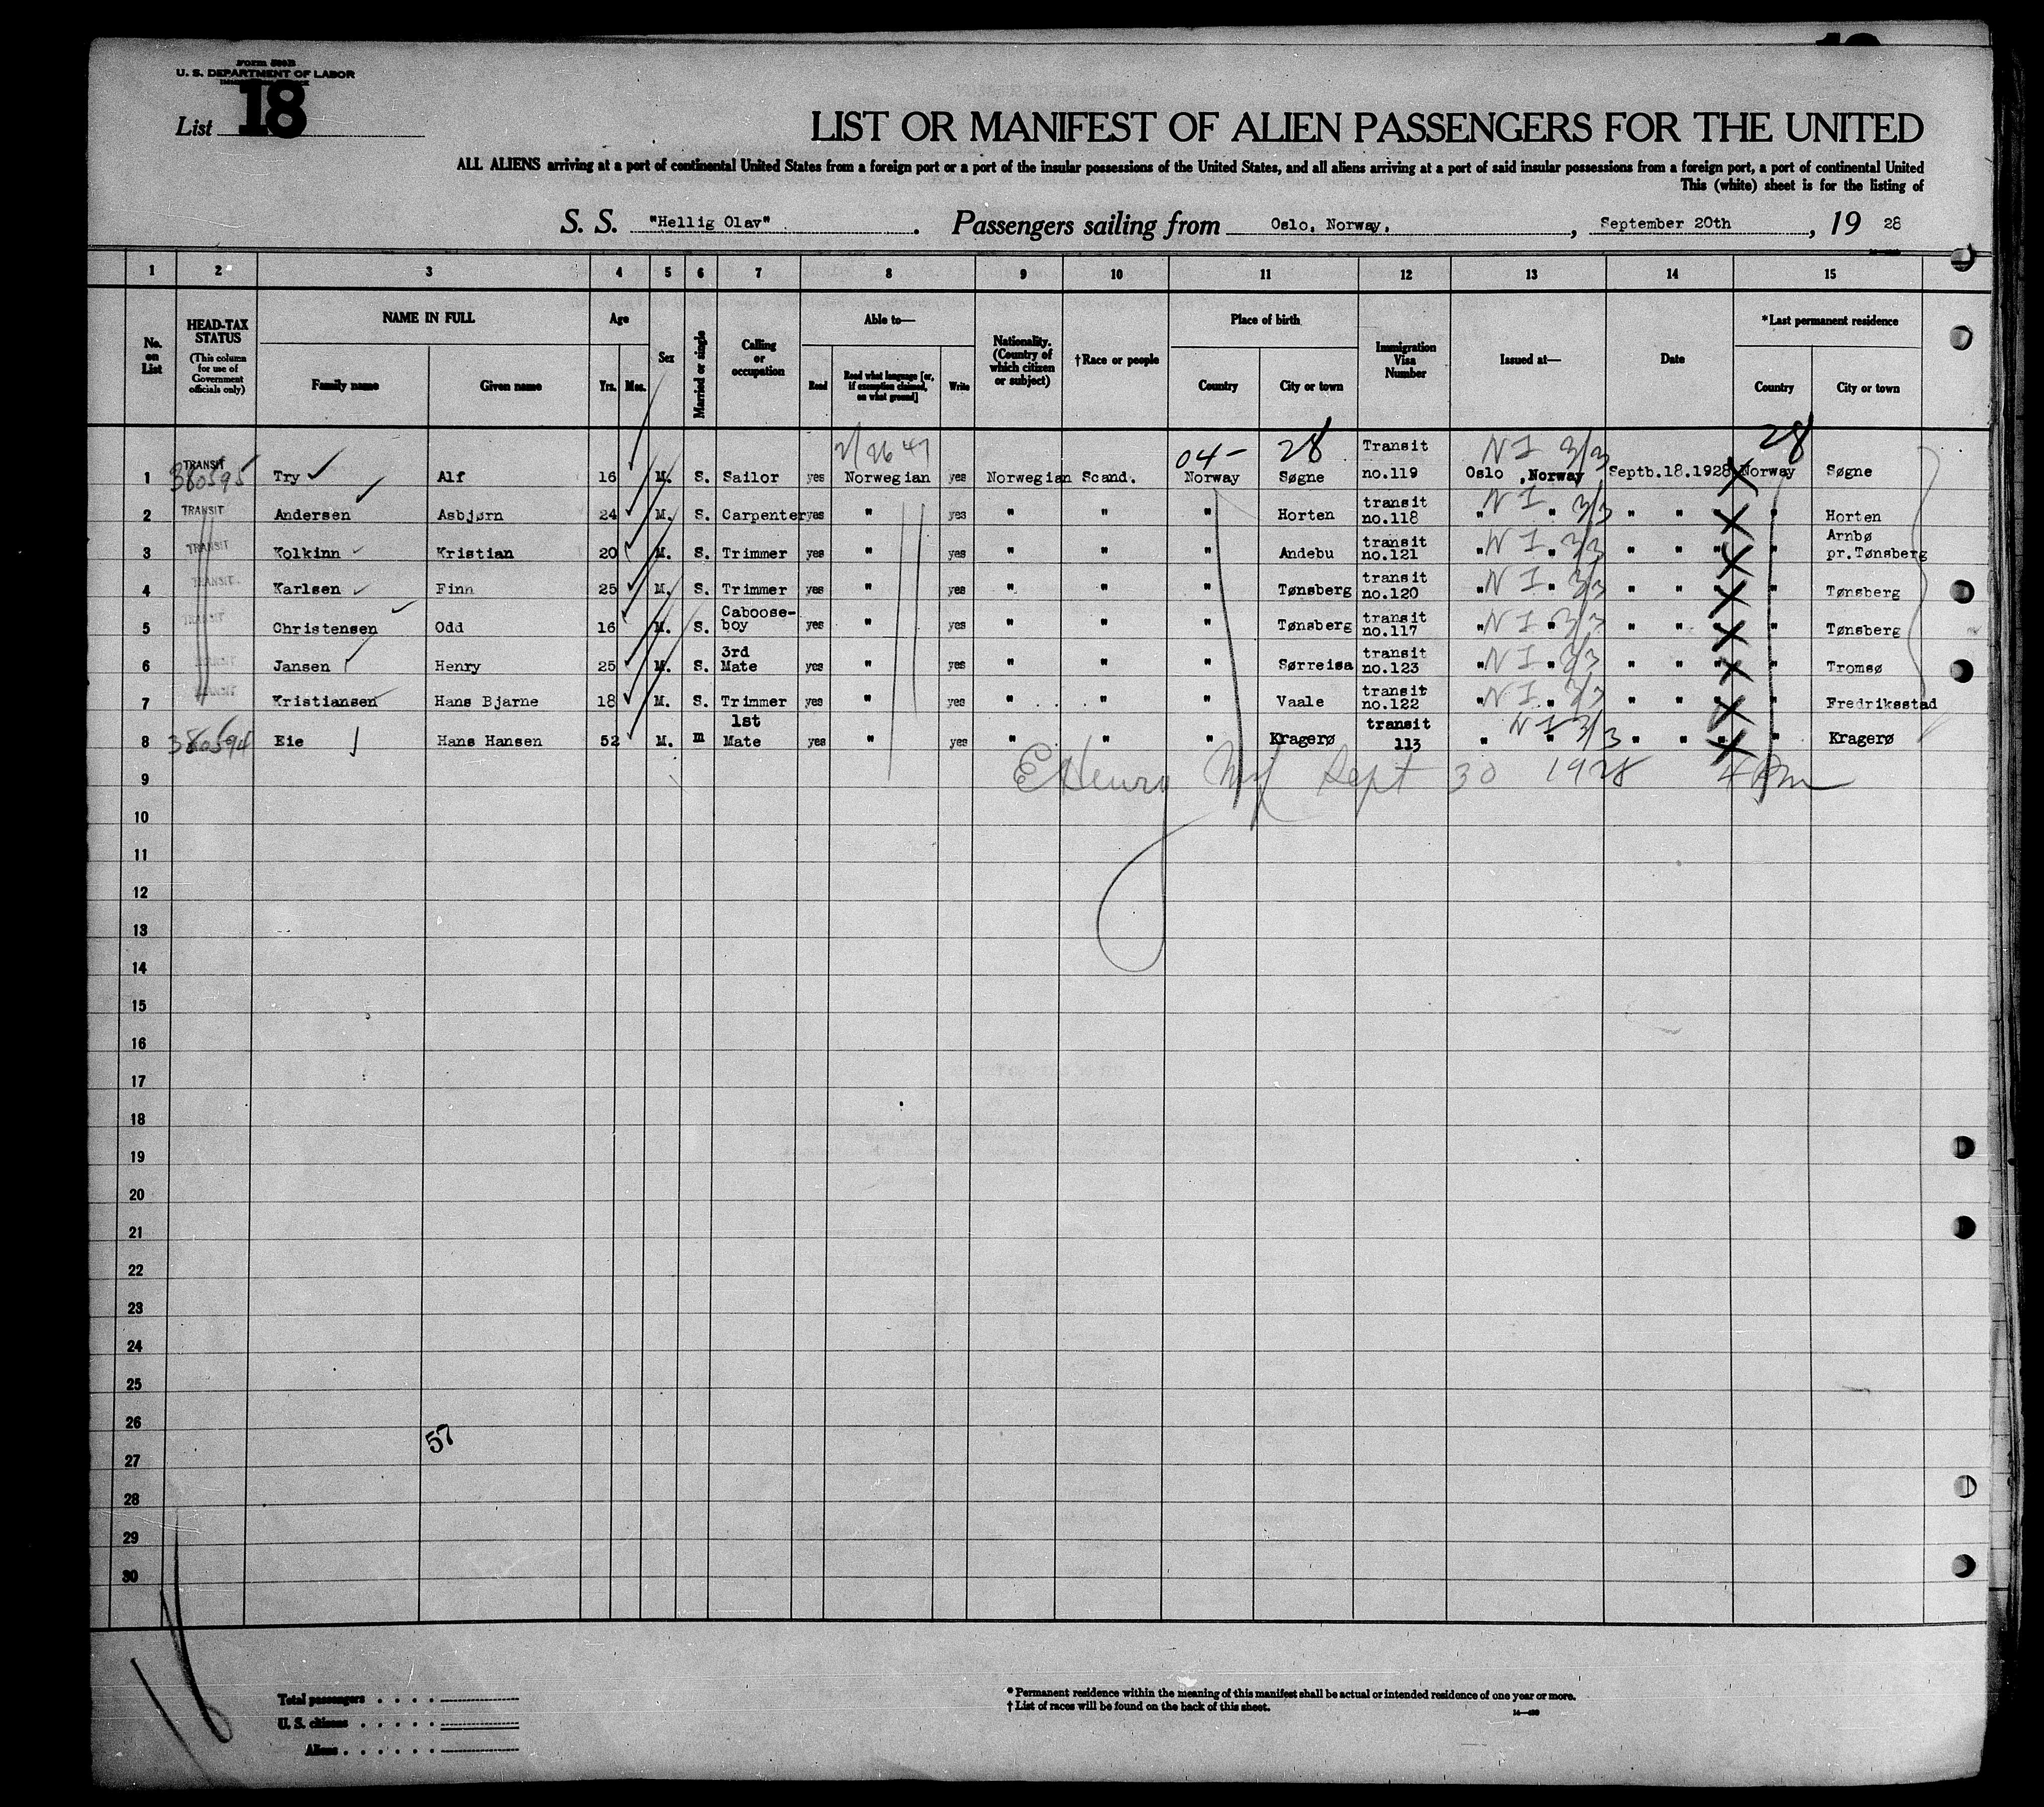 Form 500B
U. S. DEPARTMENT OF LABOR
List 18
LIST OR MANIFEST OF ALIEN PASSENGERS FOR THE UNITED
ALL ALIENS arriving at a port of continental United States from a foreign port or a port of the insular possessions of the United States, and all aliens arriving at a port of said insular possessions from a foreign port, a port of continental United
This (white) sheet is for the listing of
S. S. "Hellig Olav" . Passengers sailing from Oslo, Norway. , September 20th , 19 28
1 2 3 4 5 6 7 8 9 10 11 12 13 14 15
No. on List
HEAD-TAX STATUS (This column for use of Government officials only)
NAME IN FULL Family name Given name
Age Yrs. Mos.
Sex
Married or single
Calling or occupation
Able to— Read Read what language [or, if exemption claimed, on what ground] Write
Nationality. (Country of which citizen or subject)
†Race or people
Place of birth Country City or town
Immigration Visa Number
Issued at—
Date
*Last permanent residence Country City or town
2/26 47 04- 28 NI 3/3 28
1 TRANSIT 380595 Try Alf 16 M. S. Sailor yes Norwegian yes Norwegian Scand. Norway Søgne Transit no.119 Oslo ,Norway Septb.18.1928 Norway Søgne
2 TRANSIT Andersen Asbjørn 24 M. S. Carpenter yes " yes " " " Horten transit no.118 " NI " 3/3 " " " Horten
3 TRANSIT Kolkinn Kristian 20 M. S. Trimmer yes " yes " " " Andebu transit no.121 " NI " 3/3 " " " " Arnbø pr.Tønsberg
4 TRANSIT Karlsen Finn 25 M. S. Trimmer yes " yes " " " Tønsberg transit no.120 " NI " 3/3 " " " " Tønsberg
5 TRANSIT Christensen Odd 16 M. S. Caboose-boy yes " yes " " " Tønsberg transit no.117 " NI " 3/3 " " " " Tønsberg
6 TRANSIT Jansen Henry 25 M. S. 3rd Mate yes " yes " " " Sørreisa transit no.123 " NI " 3/3 " " " " Tromsø
7 TRANSIT Kristiansen Hans Bjarne 18 M. S. Trimmer yes " yes " " " Vaale transit no.122 " NI " 3/3 " " " " Fredriksstad
8 380594 Eie Hans Hansen 52 M. m 1st Mate yes " yes " " " Kragerø transit 113 " NI " 3/3 " " " " Kragerø
9 Henry Sept 30 1928 4 Pm
10
11
12
13
14
15
16
17
18
19
20
21
22
23
24
25
26
57
27
28
29
30
Total passengers . . . .
U. S. citizens . . . . .
Aliens . . . . . .
* Permanent residence within the meaning of this manifest shall be actual or intended residence of one year or more.
† List of races will be found on the back of this sheet.